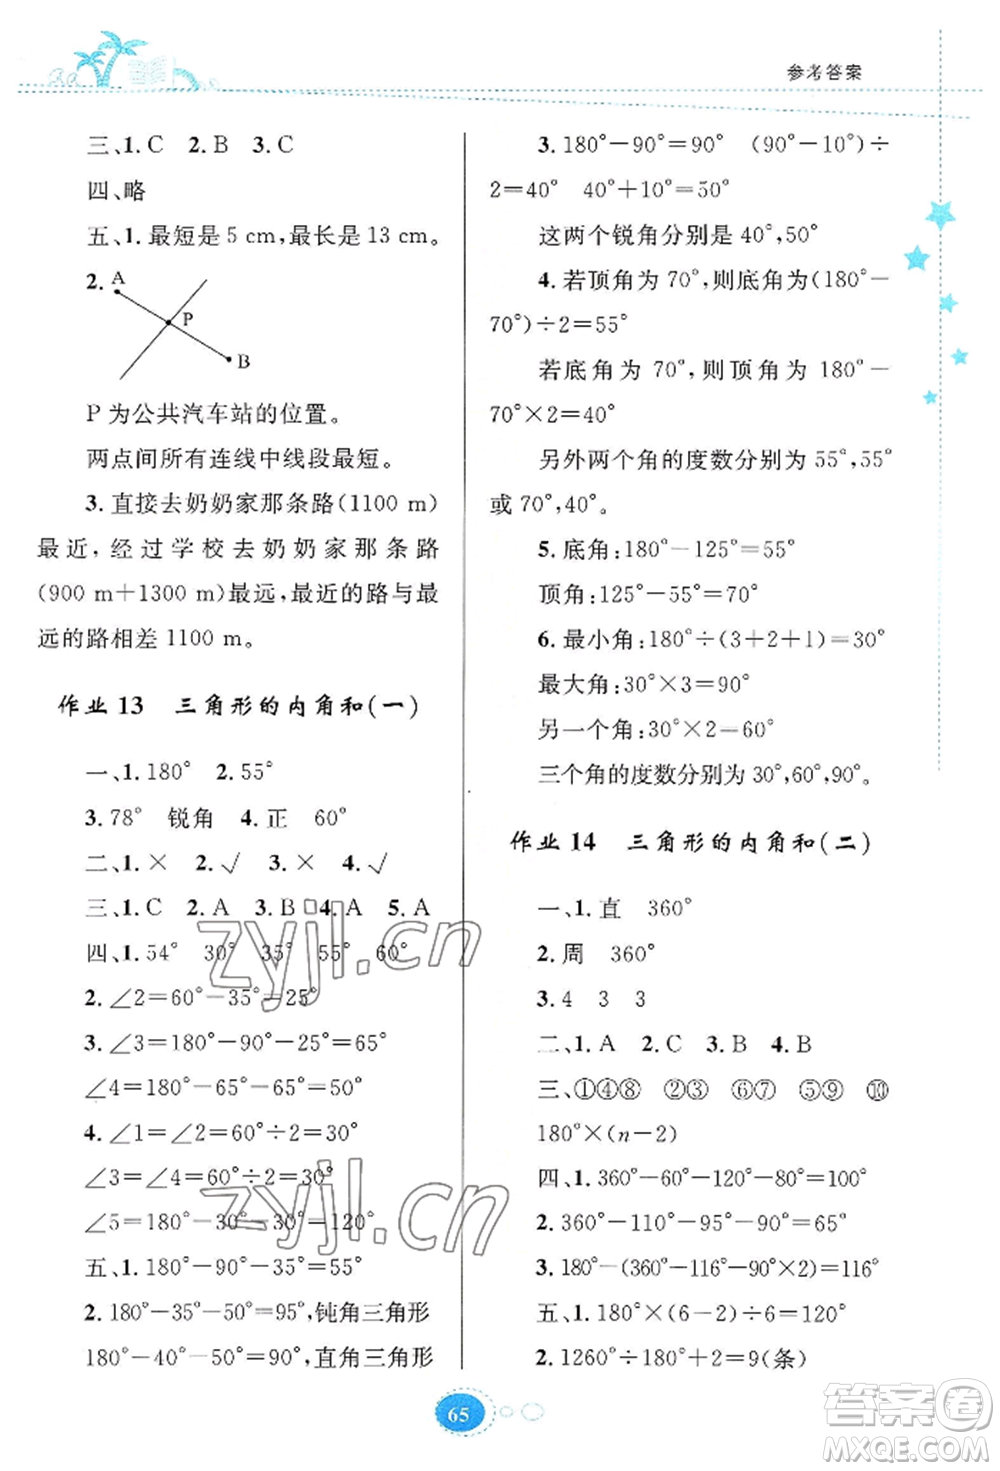 参考答案
三、1.C 2.B 3.C
四、略
五、1.最短是 5 cm,最长是 13 cm。
2.
A
P
B
P 为公共汽车站的位置。
两点间所有连线中线段最短。
3.直接去奶奶家那条路(1100 m)
最近，经过学校去奶奶家那条路
(900 m＋1300 m)最远,最近的路与最
远的路相差 1100 m。
作业 13 三角形的内角和(一)
一、1.180° 2.55°
3.78° 锐角 4.正 60°
二、1.× 2.√ 3.× 4.√
三、1.C 2.A 3.B 4.A 5.A
四、1.54° 30° 35° 55° 60°
2.∠2＝60°－35°＝25°
3.∠3＝180°－90°－25°＝65°
∠4＝180°－65°－65°＝50°
4.∠1＝∠2＝60°÷2＝30°
∠3＝∠4＝60°÷2＝30°
∠5＝180°－30°－30°＝120°
五、1.180°－90°－35°＝55°
2.180°－35°－50°＝95°,钝角三角形
180°－40°－50°＝90°,直角三角形
3.180°－90°＝90° (90°－10°)÷
2＝40° 40°＋10°＝50°
这两个锐角分别是 40°,50°
4.若顶角为 70°,则底角为(180°－
70°)÷2＝55°
若底角为 70°,则顶角为 180°－
70°×2＝40°
另外两个角的度数分别为 55°,55°
或 70°,40°。
5.底角:180°－125°＝55°
顶角:125°－55°＝70°
6.最小角:180°÷(3＋2＋1)＝30°
最大角:30°×3＝90°
另一个角:30°×2＝60°
三个角的度数分别为 30°,60°,90°。
作业 14 三角形的内角和(二)
一、1.直 360°
2.周 360°
3.4 3 3
二、1.A 2.C 3.B 4.B
三、①④⑧ ②③ ⑥⑦ ⑤⑨ ⑩
180°×(n－2)
四、1.360°－100°－80°－80°＝100°
2.360°－110°－95°－90°＝65°
3.180°－(360°－116°－90°－90°)＝116°
五、1.180°×(6－2)÷6＝120°
2.1260°÷180°＋2＝9(条)
65
zyjl.cn
zyjl.cn
答案圈
MXQE.COM